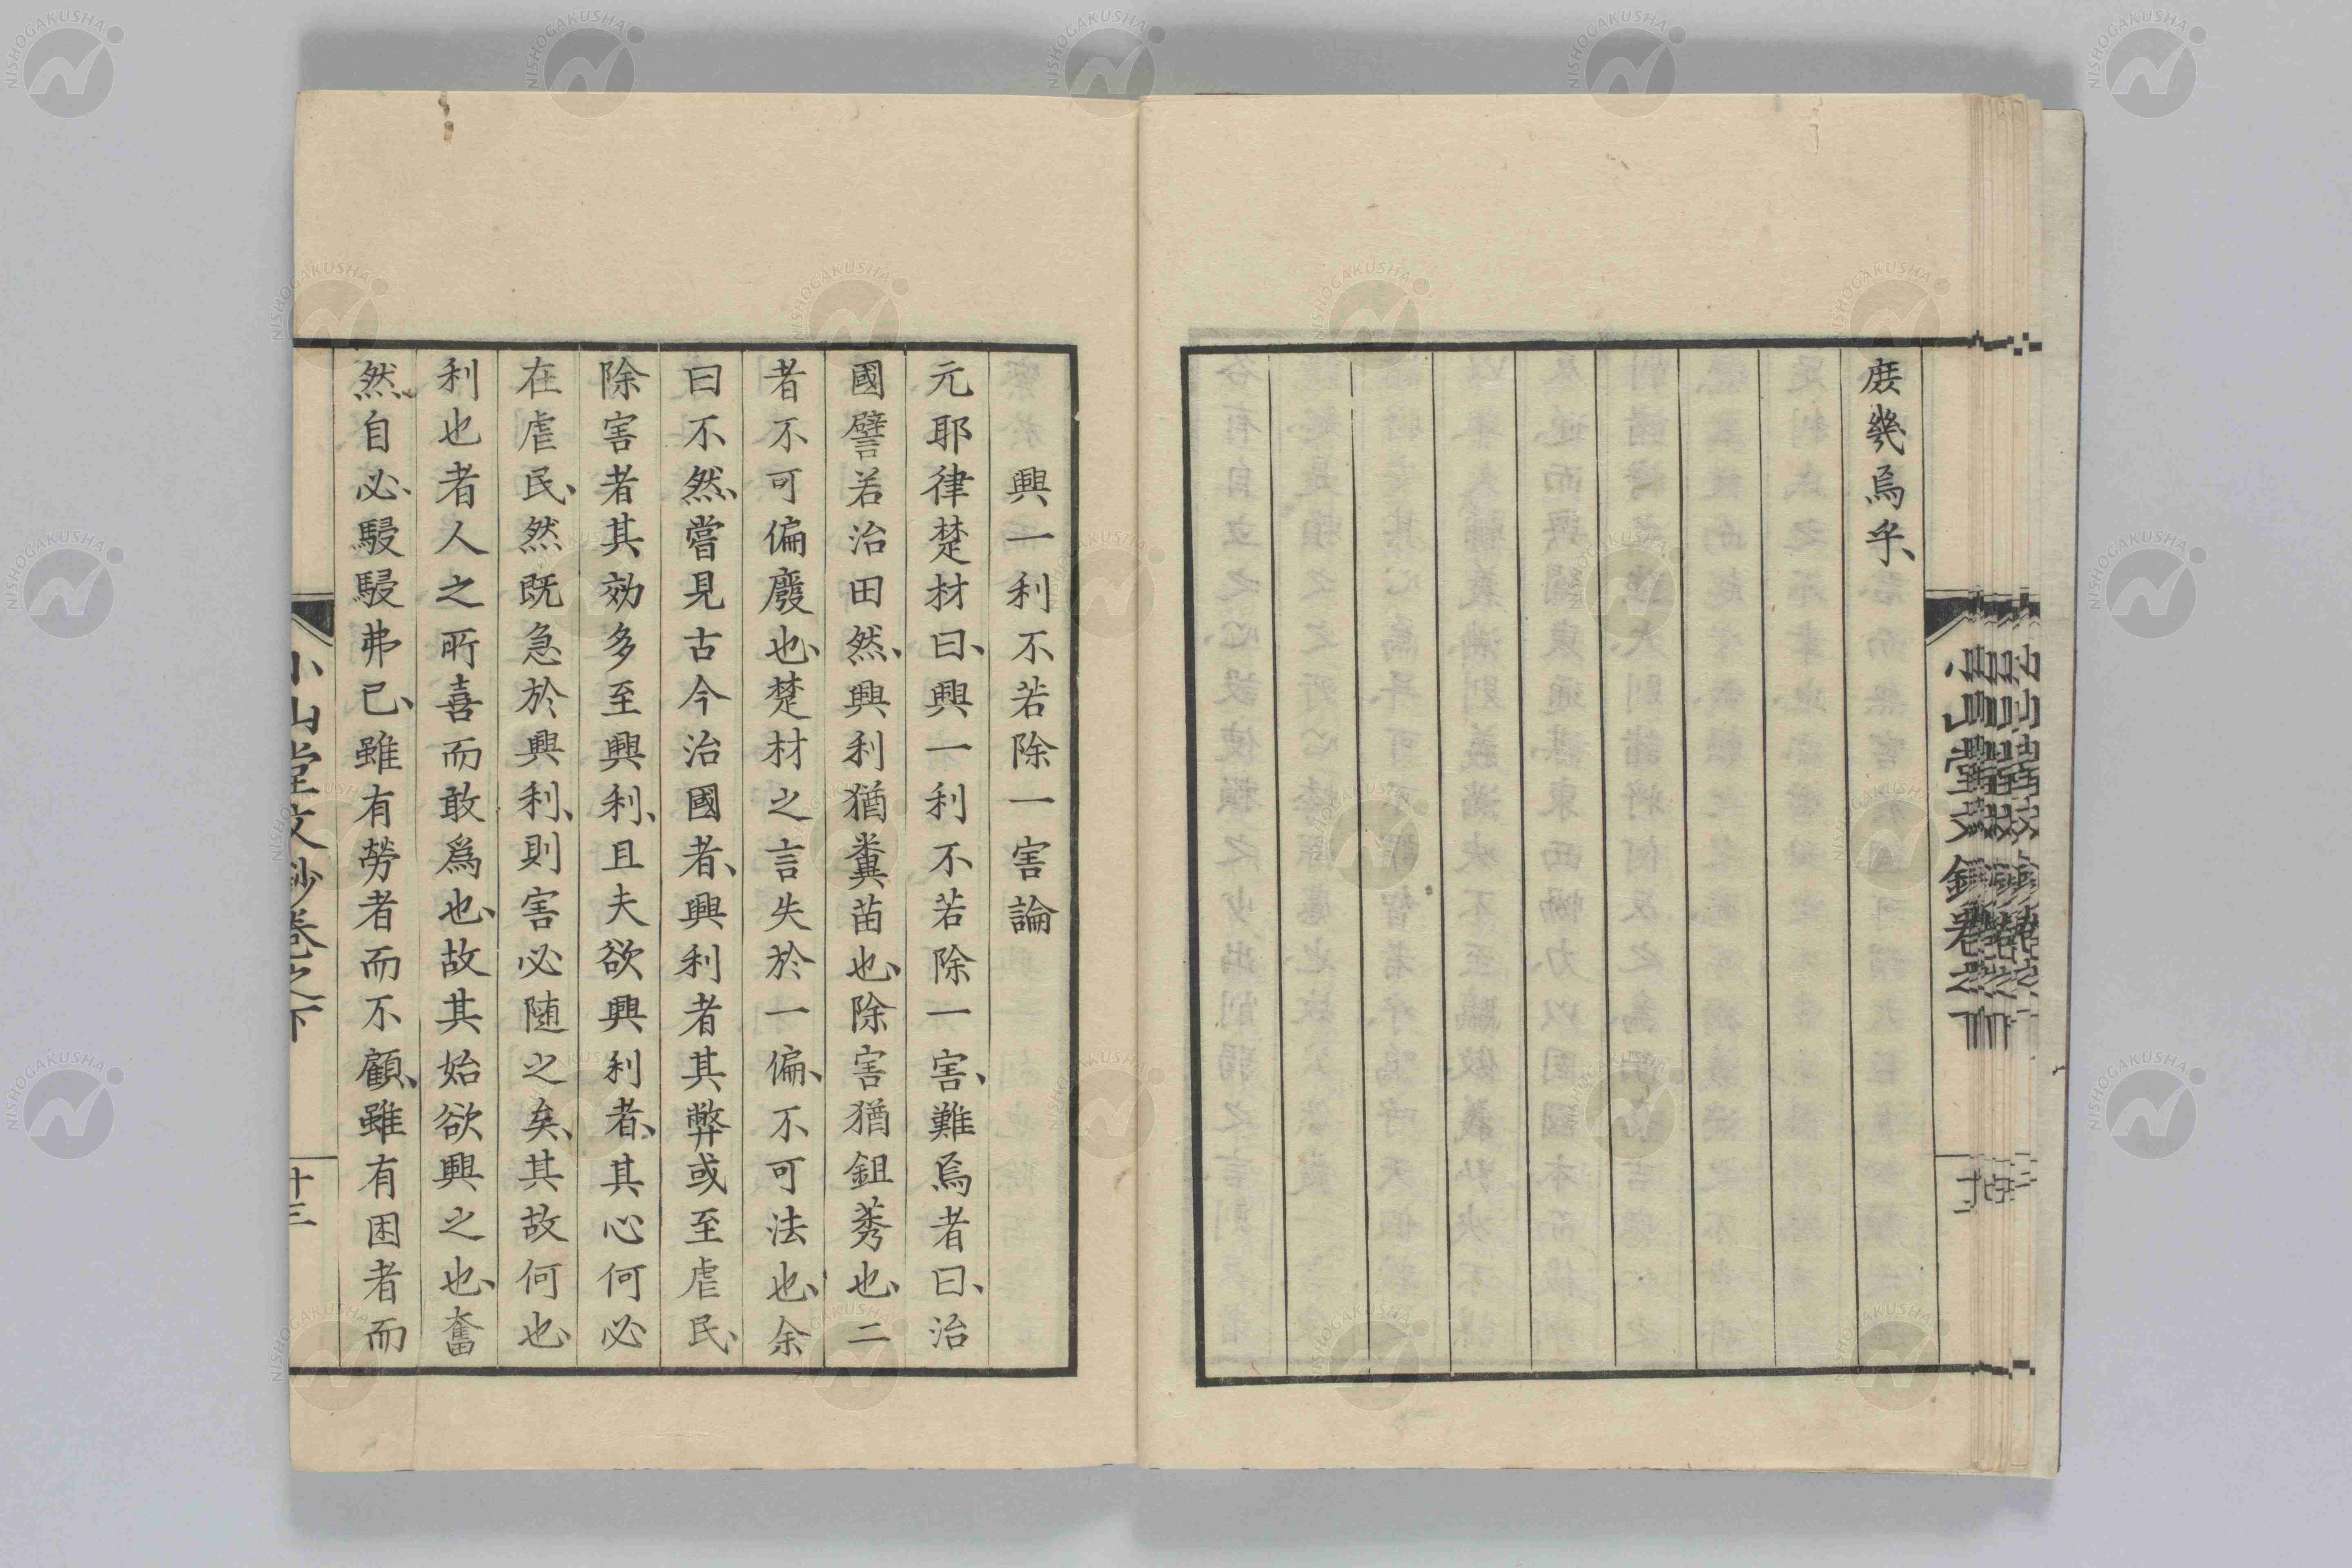 庶幾焉乎、
興一利不若除一害論
元耶律楚材曰、興一利不若除一害、難焉者曰、治
國譬若治田然、興利猶糞苗也、除害猶鉏莠也、二
者不可偏廢也、楚材之言失於一偏、不可法也、余
曰不然、嘗見古今治國者、興利者其弊或至虐民、
除害者其効多至興利、且夫欲興利者、其心何必
在虐民、然既急於興利、則害必随之矣、其故何也、
利也者人之所喜而敢爲也、故其始欲興之也、奮
然自必、駸駸弗已、雖有勞者而不顧、雖有困者而
小山堂文鈔卷之下
十三
NISHOGAKUSHA